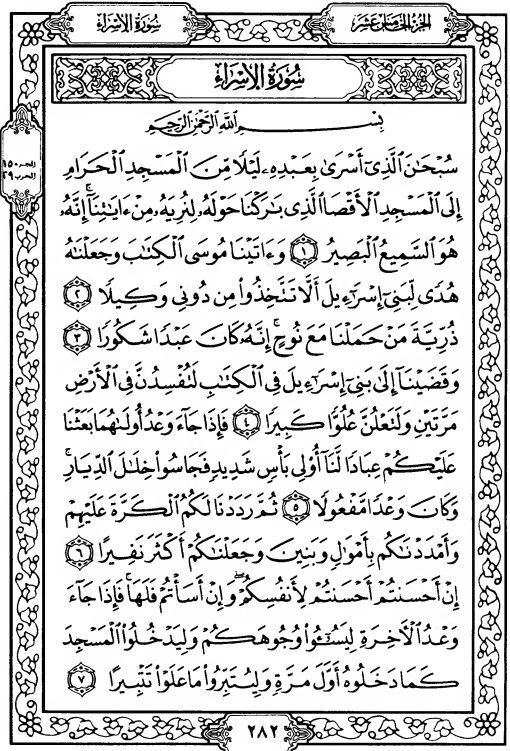 سُورَةُ الإِسْرَاءِ
الجُزْءُ الخَامِسُ عَشَرَ
سُورَةُ الإِسْرَاءِ
بِسْمِ ٱللَّهِ ٱلرَّحْمَٰنِ ٱلرَّحِيمِ
سُبْحَٰنَ ٱلَّذِىٓ أَسْرَىٰ بِعَبْدِهِۦ لَيْلًا مِّنَ ٱلْمَسْجِدِ ٱلْحَرَامِ
إِلَى ٱلْمَسْجِدِ ٱلْأَقْصَا ٱلَّذِى بَٰرَكْنَا حَوْلَهُۥ لِنُرِيَهُۥ مِنْ ءَايَٰتِنَآ ۚ إِنَّهُۥ
هُوَ ٱلسَّمِيعُ ٱلْبَصِيرُ ١ وَءَاتَيْنَا مُوسَى ٱلْكِتَٰبَ وَجَعَلْنَٰهُ
هُدًى لِّبَنِىٓ إِسْرَٰٓءِيلَ أَلَّا تَتَّخِذُوا۟ مِن دُونِى وَكِيلًا ٢
ذُرِّيَّةَ مَنْ حَمَلْنَا مَعَ نُوحٍ ۚ إِنَّهُۥ كَانَ عَبْدًا شَكُورًا ٣
وَقَضَيْنَآ إِلَىٰ بَنِىٓ إِسْرَٰٓءِيلَ فِى ٱلْكِتَٰبِ لَتُفْسِدُنَّ فِى ٱلْأَرْضِ
مَرَّتَيْنِ وَلَتَعْلُنَّ عُلُوًّا كَبِيرًا ٤ فَإِذَا جَآءَ وَعْدُ أُولَىٰهُمَا بَعَثْنَا
عَلَيْكُمْ عِبَادًا لَّنَآ أُو۟لِى بَأْسٍ شَدِيدٍ فَجَاسُوا۟ خِلَٰلَ ٱلدِّيَارِ ۚ
وَكَانَ وَعْدًا مَّفْعُولًا ٥ ثُمَّ رَدَدْنَا لَكُمُ ٱلْكَرَّةَ عَلَيْهِمْ
وَأَمْدَدْنَٰكُم بِأَمْوَٰلٍ وَبَنِينَ وَجَعَلْنَٰكُمْ أَكْثَرَ نَفِيرًا ٦
إِنْ أَحْسَنتُمْ أَحْسَنتُمْ لِأَنفُسِكُمْ ۖ وَإِنْ أَسَأْتُمْ فَلَهَا ۚ فَإِذَا جَآءَ
وَعْدُ ٱلْءَاخِرَةِ لِيَسُۥٓـُٔوا۟ وُجُوهَكُمْ وَلِيَدْخُلُوا۟ ٱلْمَسْجِدَ
كَمَا دَخَلُوهُ أَوَّلَ مَرَّةٍ وَلِيُتَبِّرُوا۟ مَا عَلَوْا۟ تَتْبِيرًا ٧
٢٨٢
الحزب ٢٩